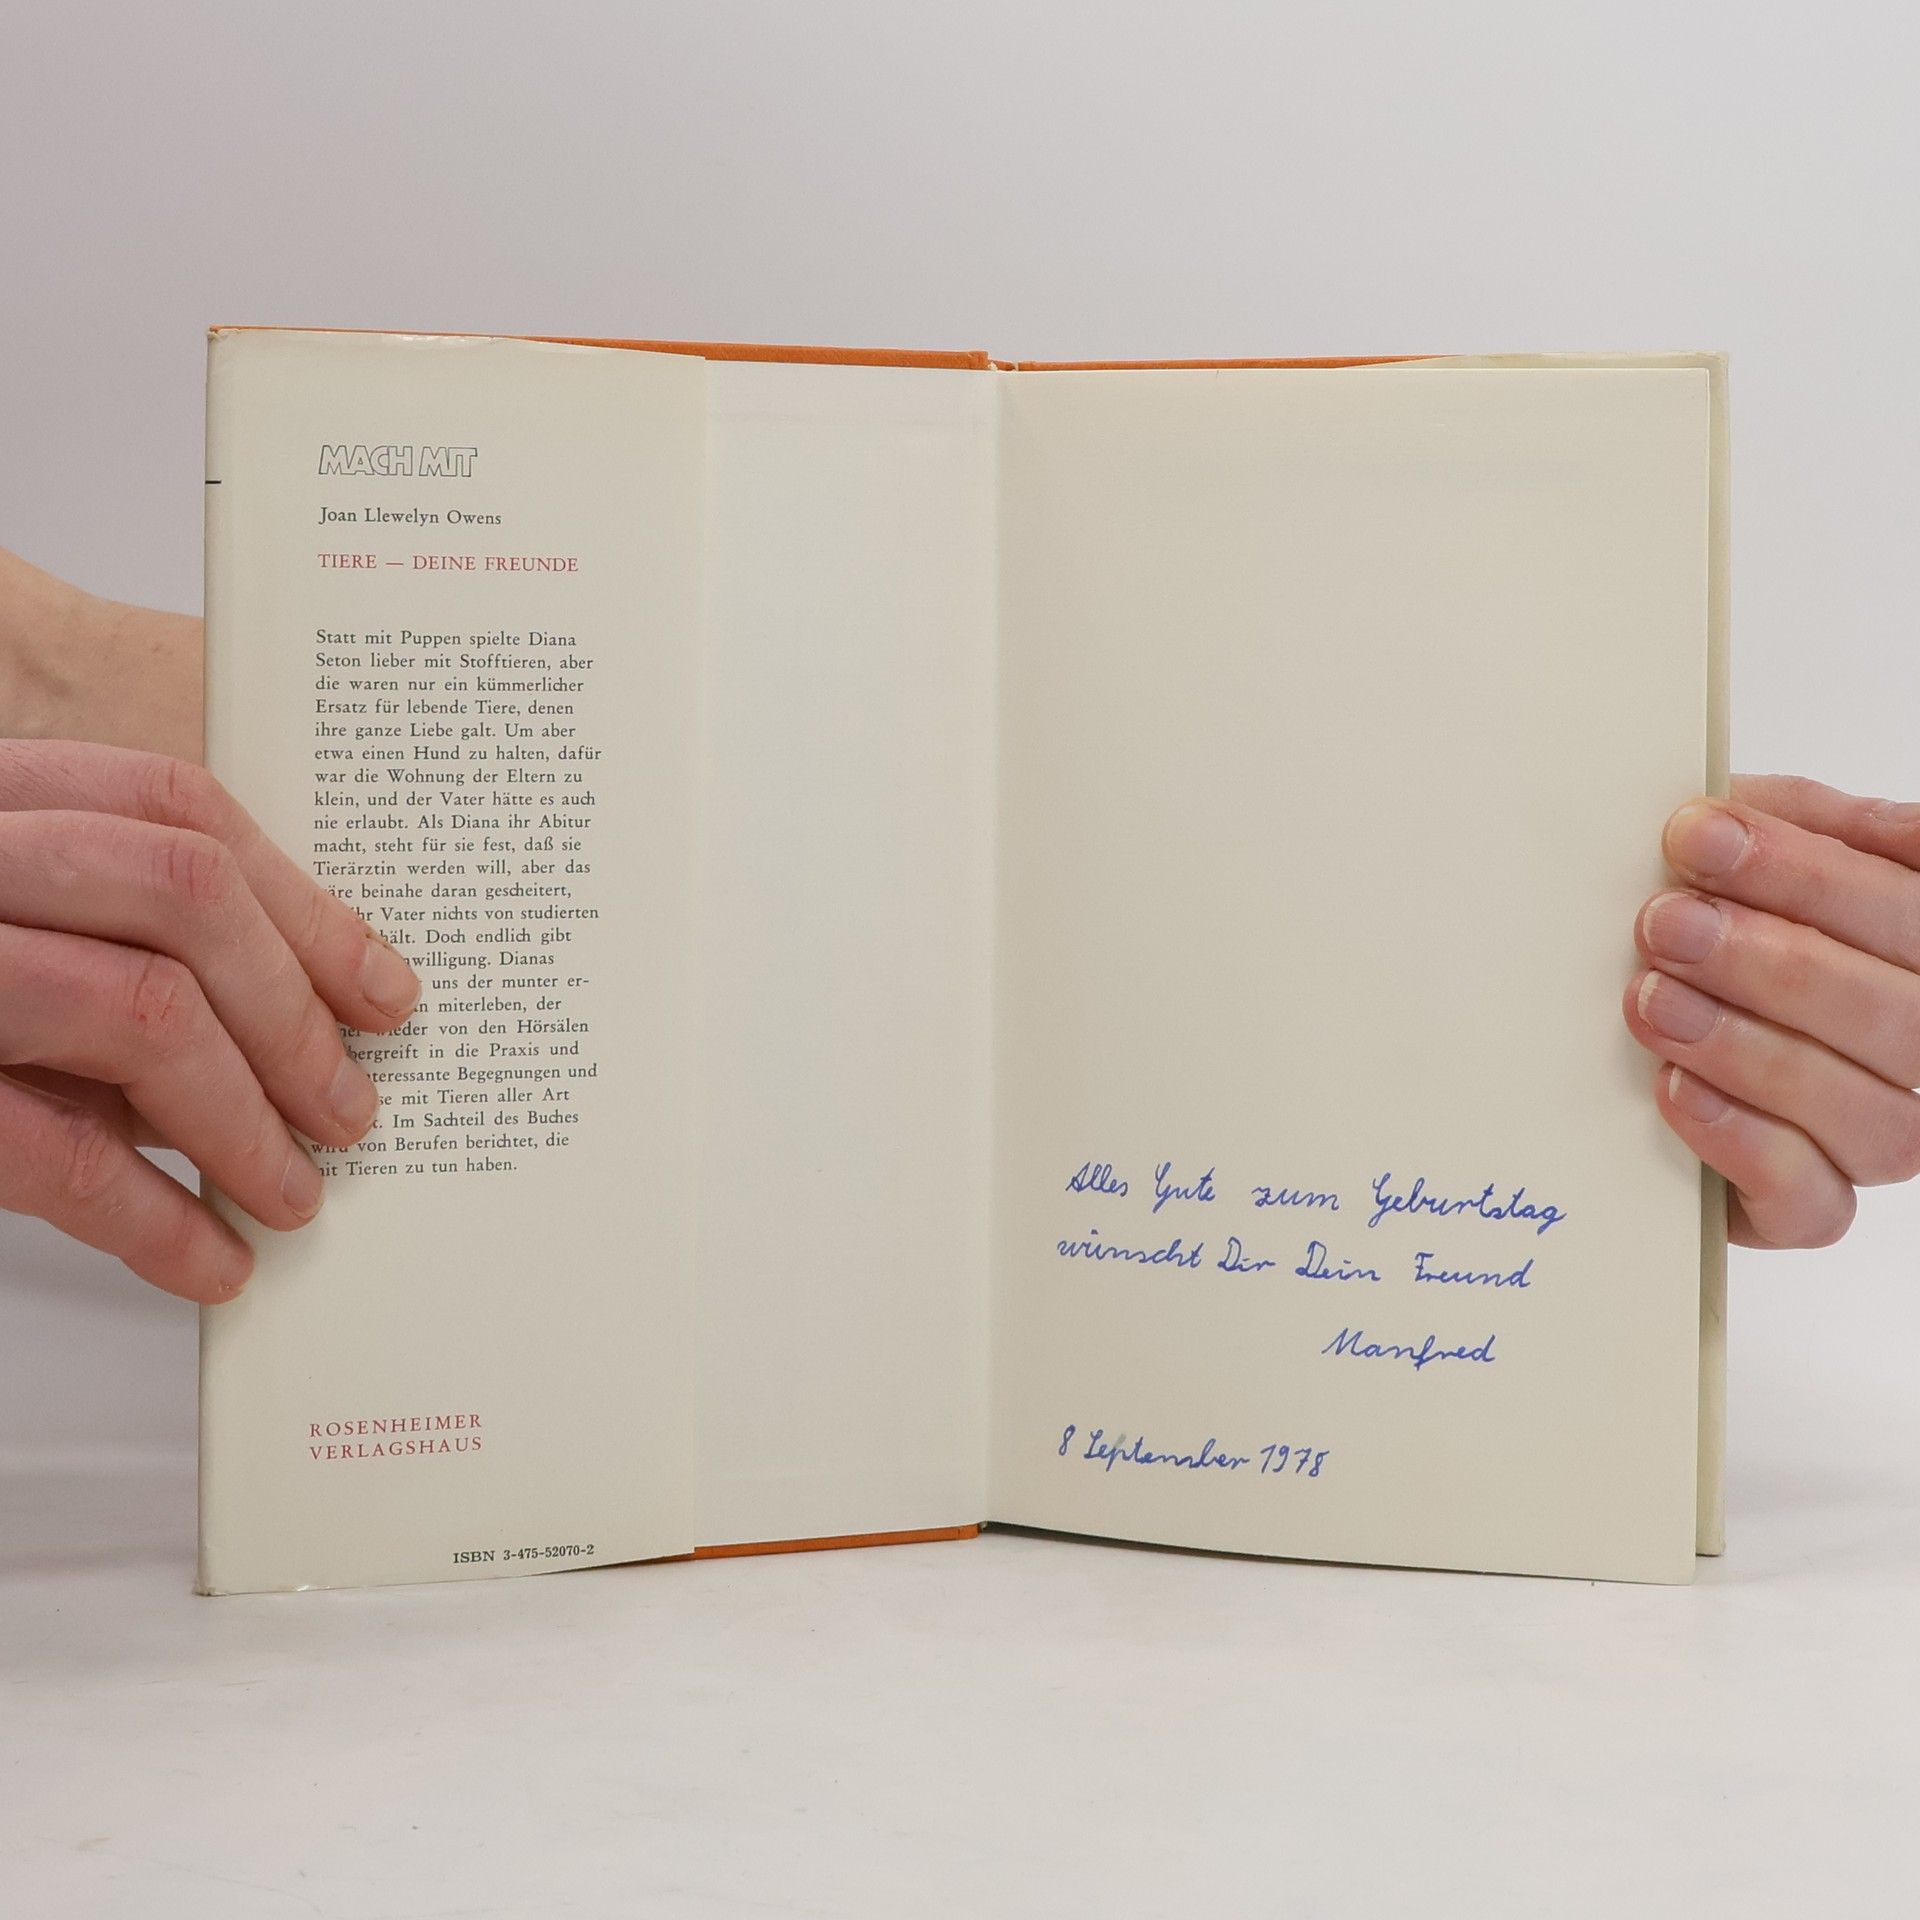 MACH MIT
Joan Llewelyn Owens
TIERE — DEINE FREUNDE
Statt mit Puppen spielte Diana
Seton lieber mit Stofftieren, aber
die waren nur ein kümmerlicher
Ersatz für lebende Tiere, denen
ihre ganze Liebe galt. Um aber
etwa einen Hund zu halten, dafür
war die Wohnung der Eltern zu
klein, und der Vater hätte es auch
nie erlaubt. Als Diana ihr Abitur
macht, steht für sie fest, daß sie
Tierärztin werden will, aber das
beinahe daran gescheitert,
Vater nichts von studierten
hält. Doch endlich gibt
Dianas
uns der munter er-
miterleben, der
von den Hörsälen
in die Praxis und
Begegnungen und
mit Tieren aller Art
Im Sachteil des Buches
wird von Berufen berichtet, die
mit Tieren zu tun haben.
ROSENHEIMER
VERLAGSHAUS
ISBN 3-475-52070-2
Alles Gute zum Geburtstag
wünscht Dir Dein Freund
Manfred
8 September 1978